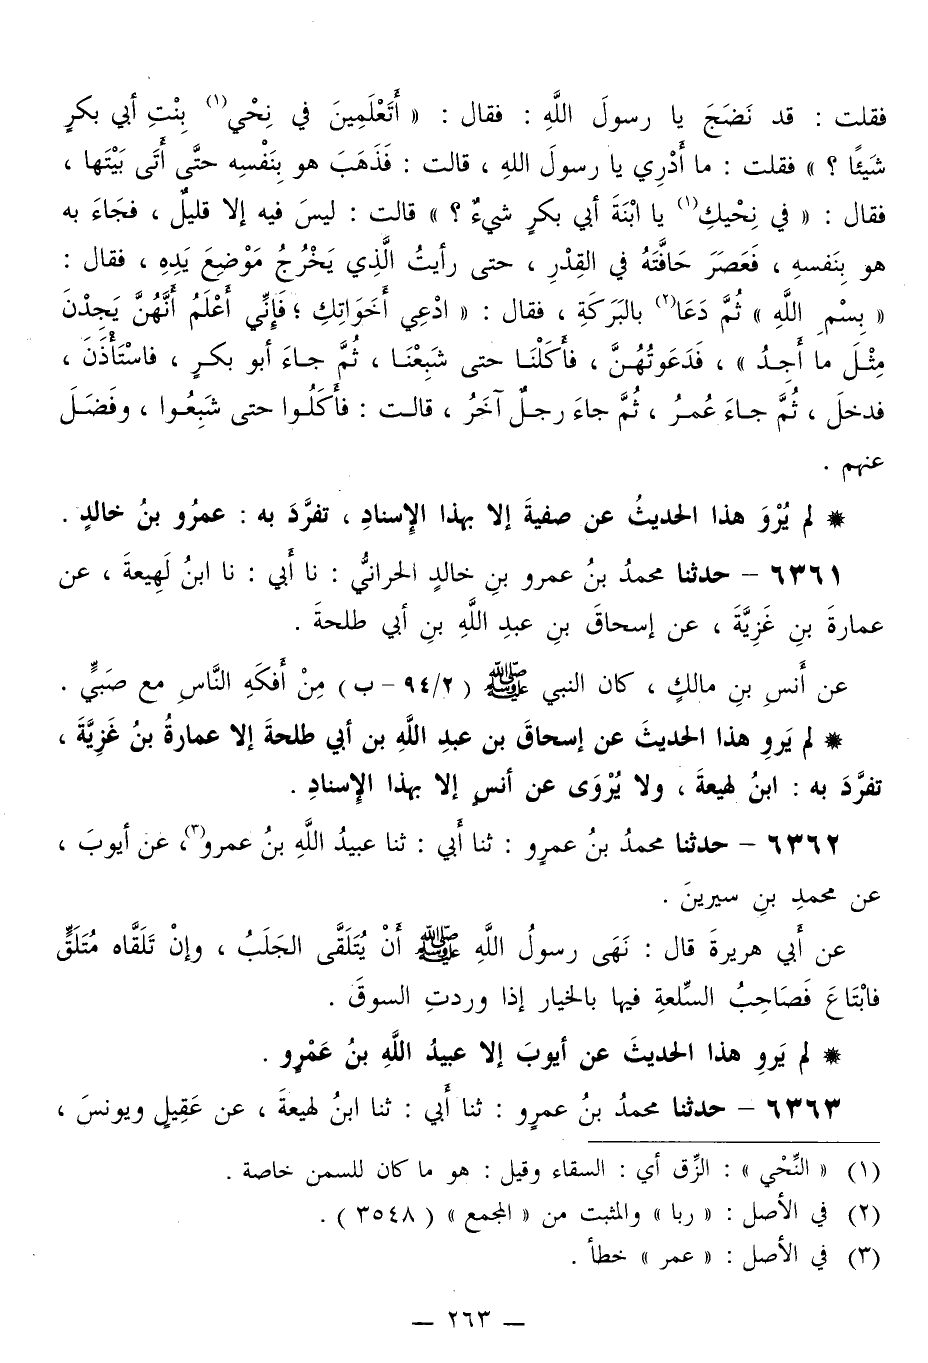 فقلت : قد نَضَجَ يا رسولَ اللَّهِ : فقال : « أَتَعْلَمِينَ في نِحْيِ(١) بِنْتِ أبي بكرٍ
شَيئًا ؟ » فقلت : ما أَدْرِي يا رسولَ اللهِ ، قالت : فَذَهَبَ هو بِنَفْسِه حتَّى أَتَى بَيْتَها ،
فقال : « في نِحْيكِ(١) يا ابْنَةَ أبي بكرٍ شيءٌ ؟ » قالت : ليسَ فيه إلا قليلٌ ، فجَاءَ به
هو بِنَفسهِ ، فَعَصَرَ حَافَتَهُ في القِدْرِ ، حتى رأيتُ الَّذِي يَخْرُجُ مَوْضِعَ يَدِهِ ، فقال :
« بِسْمِ اللَّهِ » ثُمَّ دَعَا(٢) بالبَرَكَةِ ، فقال : « ادْعِي أَخَوَاتِكِ ؛ فَإِنِّي أَعْلَمُ أَنَّهُنَّ يَجِدْنَ
مِثْلَ ما أَجِدُ » ، فَدَعَوتُهُنَّ ، فأَكَلْنَا حتى شَبِعْنَا ، ثُمَّ جاءَ أبو بكرٍ ، فاسْتَأْذَنَ ،
فدخلَ ، ثُمَّ جاءَ عُمرُ ، ثُمَّ جاءَ رجلٌ آخَرُ ، قالت : فأَكَلُوا حتى شَبِعُوا ، وفَضَلَ
عنهم .
* لم يُرْوَ هذا الحديثُ عن صفيةَ إلا بهذا الإسنادِ ، تفرَّدَ به : عمرُو بنُ خالدٍ .
٦٣٦١ - حدثنا محمدُ بنُ عمرو بنِ خالدٍ الحرانيُّ : نا أَبي : نا ابنُ لَهِيعةَ ، عن
عمارةَ بنِ غَزِيَّةَ ، عن إسحاقَ بنِ عبدِ اللَّهِ بنِ أبي طلحةَ .
عن أَنسِ بنِ مالكٍ ، كان النبي ﷺ ( ٩٤/٢ - ب ) مِنْ أَفكَهِ النَّاسِ مع صَبيٍّ .
* لم يَروِ هذا الحديثَ عن إسحاقَ بنِ عبدِ اللَّهِ بن أبي طلحةَ إلا عمارةُ بنُ غَزِيَّةَ ،
تفرَّدَ به : ابنُ لهيعةَ ، ولا يُرْوَى عن أنسٍ إلا بهذا الإسنادِ .
٦٣٦٢ - حدثنا محمدُ بنُ عمرٍو : ثنا أَبي : ثنا عبيدُ اللَّهِ بنُ عمرو(٣)، عن أيوبَ ،
عن محمدِ بنِ سيرينَ .
عن أَبي هريرةَ قال : نَهَى رسولُ اللَّهِ ﷺ أَنْ يُتَلَقَّى الجَلَبُ ، وإنْ تَلَقَّاه مُتَلَقٍّ
فابْتَاعَ فَصَاحِبُ السِّلعةِ فيها بالخيار إذا وردتِ السوقَ .
* لم يَروِ هذا الحديثَ عن أيوبَ إلا عبيدُ اللَّهِ بنُ عَمْرٍو .
٦٣٦٣ - حدثنا محمدُ بنُ عمرٍو : ثنا أَبي : ثنا ابنُ لهيعةَ ، عن عَقِيلٍ ويونسَ ،
(١) « النِّحْي » : الزِّق أي : السقاء وقيل : هو ما كان للسمن خاصة .
(٢) في الأصل : « ربا » والمثبت من « المجمع » ( ٣٥٤٨ ) .
(٣) في الأصل : « عمر » خطأ .
— ٢٦٣ —